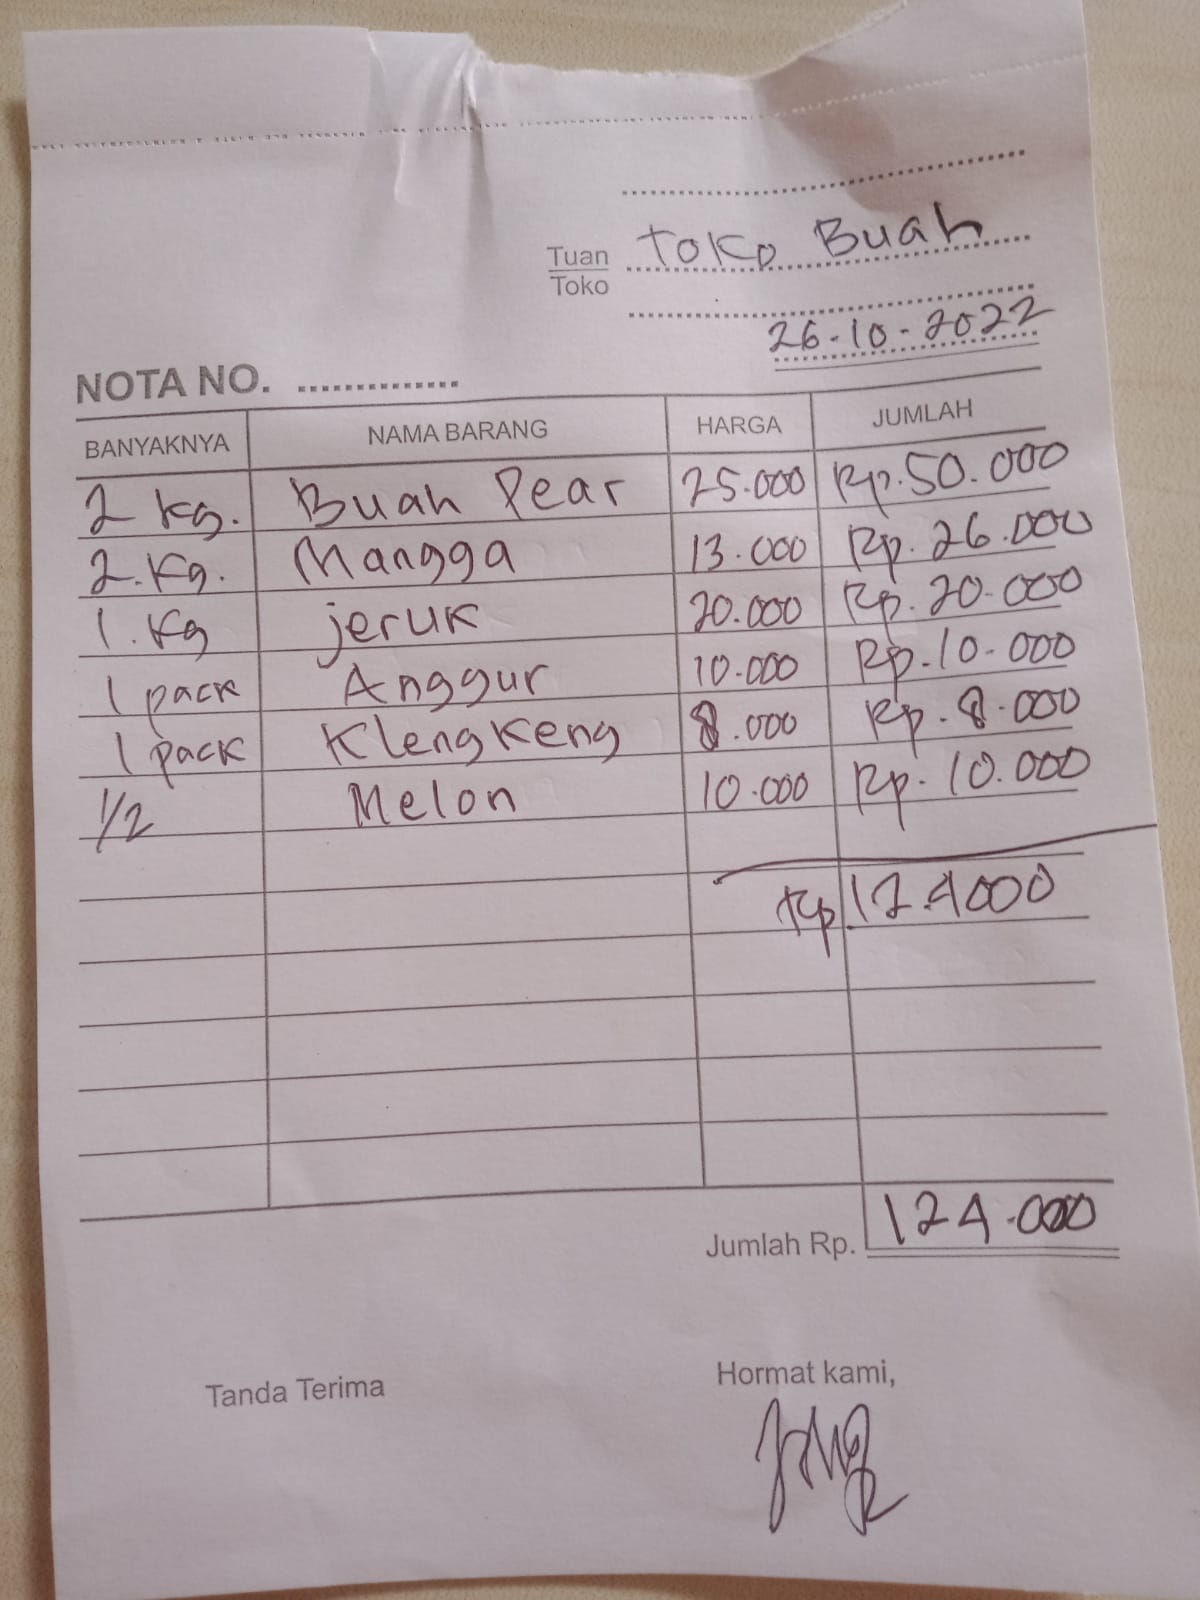 Toko Buah
Tuan
Toko
26-10-2022
NOTA NO. ..............
BANYAKNYA NAMA BARANG HARGA JUMLAH
2 kg. Buah Pear 25.000 Rp. 50.000
2. Kg. Mangga 13.000 Rp. 26.000
1. Kg jeruk 20.000 Rp. 20.000
1 pack Anggur 10.000 Rp. 10.000
1 pack Klengkeng 8.000 Rp. 8.000
1/2 Melon 10.000 Rp. 10.000
Rp. 12.4000
Jumlah Rp. 124.000
Tanda Terima Hormat kami,